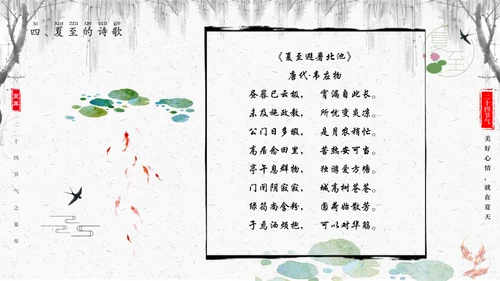 四、夏至的诗歌
《夏至避暑北池》
唐代·韦应物
昼晷已云极，宵漏自此长。
未及施政教，所忧变炎凉。
公门日多暇，是月农稍忙。
高居念田里，苦热安可当。
亭午息群物，独游爱方塘。
门闭阴寂寂，城高树苍苍。
绿筠尚含粉，圆荷始散芳。
于焉洒烦抱，可以对华觞。
夏至
二十四节气之夏至
夏至
二十四节气
美好心情，就在夏天